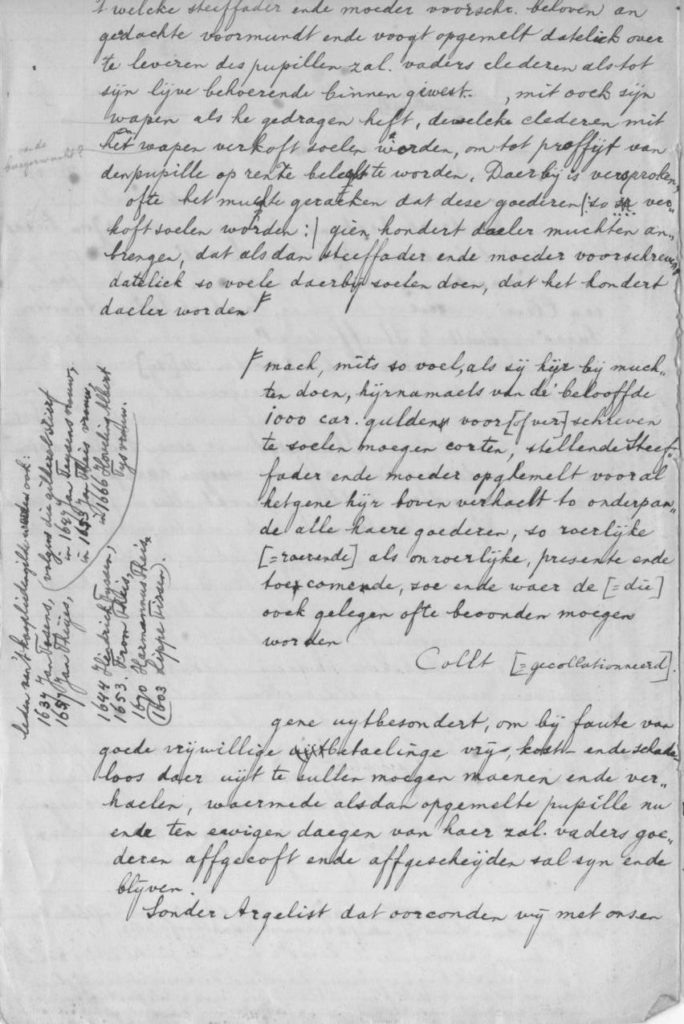 't welcke steeffader ende moeder voorschr. beloven an
gedachte voormundt ende voogt opgemelt datelick over
te leveren des pupillen zal. vaders clederen als tot
sijn lijve behoerende binnen gewest. , mit oock sijn
wapen als he gedragen heft, dewelcke clederen mit
het wapen verkoft soelen worden, om tot proffijt van
den pupille op rente belegt te worden. Daerbij is versproken,
ofte het muchte geraeken dat dese goederen |: so ver-
koft soelen worden :| gien hondert daeler muchten an-
brengen, dat alsdan steeffader ende moeder voorschreven
datelick so voele daerbij soelen doen, dat het hondert
daeler worden F
F mach, mits so voel, als sij hijr bij much-
ten doen, hijrnamaels van de belooffde
1000 car. gulden voor [of ver] schreven
te soelen moegen corten, stellende steef-
fader ende moeder opghemelt voor al
hetgene hijr boven verhaelt to onderpan-
de alle haere goederen, so roerlijke
[= roerende] als onroerlijke, presente ende
toecomende, soe ende waer de [= die]
oock gelegen ofte bevonden moegen
worden
Collt [= gecollationneerd].
gene uytbesondert, om bij faute van
goede vrijwillige uijtbetaelinge vrij, kost- ende schade-
loos daer uijt te sullen moegen maenen ende ver-
haelen, waermede alsdan opgemelte pupille nu
ende ten eewigen daegen van haer zal. vaders goe-
deren affgecoft ende affgescheijden sal syn ende
blijven.
Sonder Argelist dat oorconden wij met onsen
leden van 't kooplieden gilde werden ook:
1634 Jan Tijsens,
1651 Jan Thijes,
in 1647 Jan Tijssens vrouw,
in 1655 Jan Theis vrouw
1644 Hendrick Tyssen,
in 1666 Hendrig Albert
Tys vrouw.
1653. From Theis,
1690 Hermannus Theis
1603 Lippe Tissen.